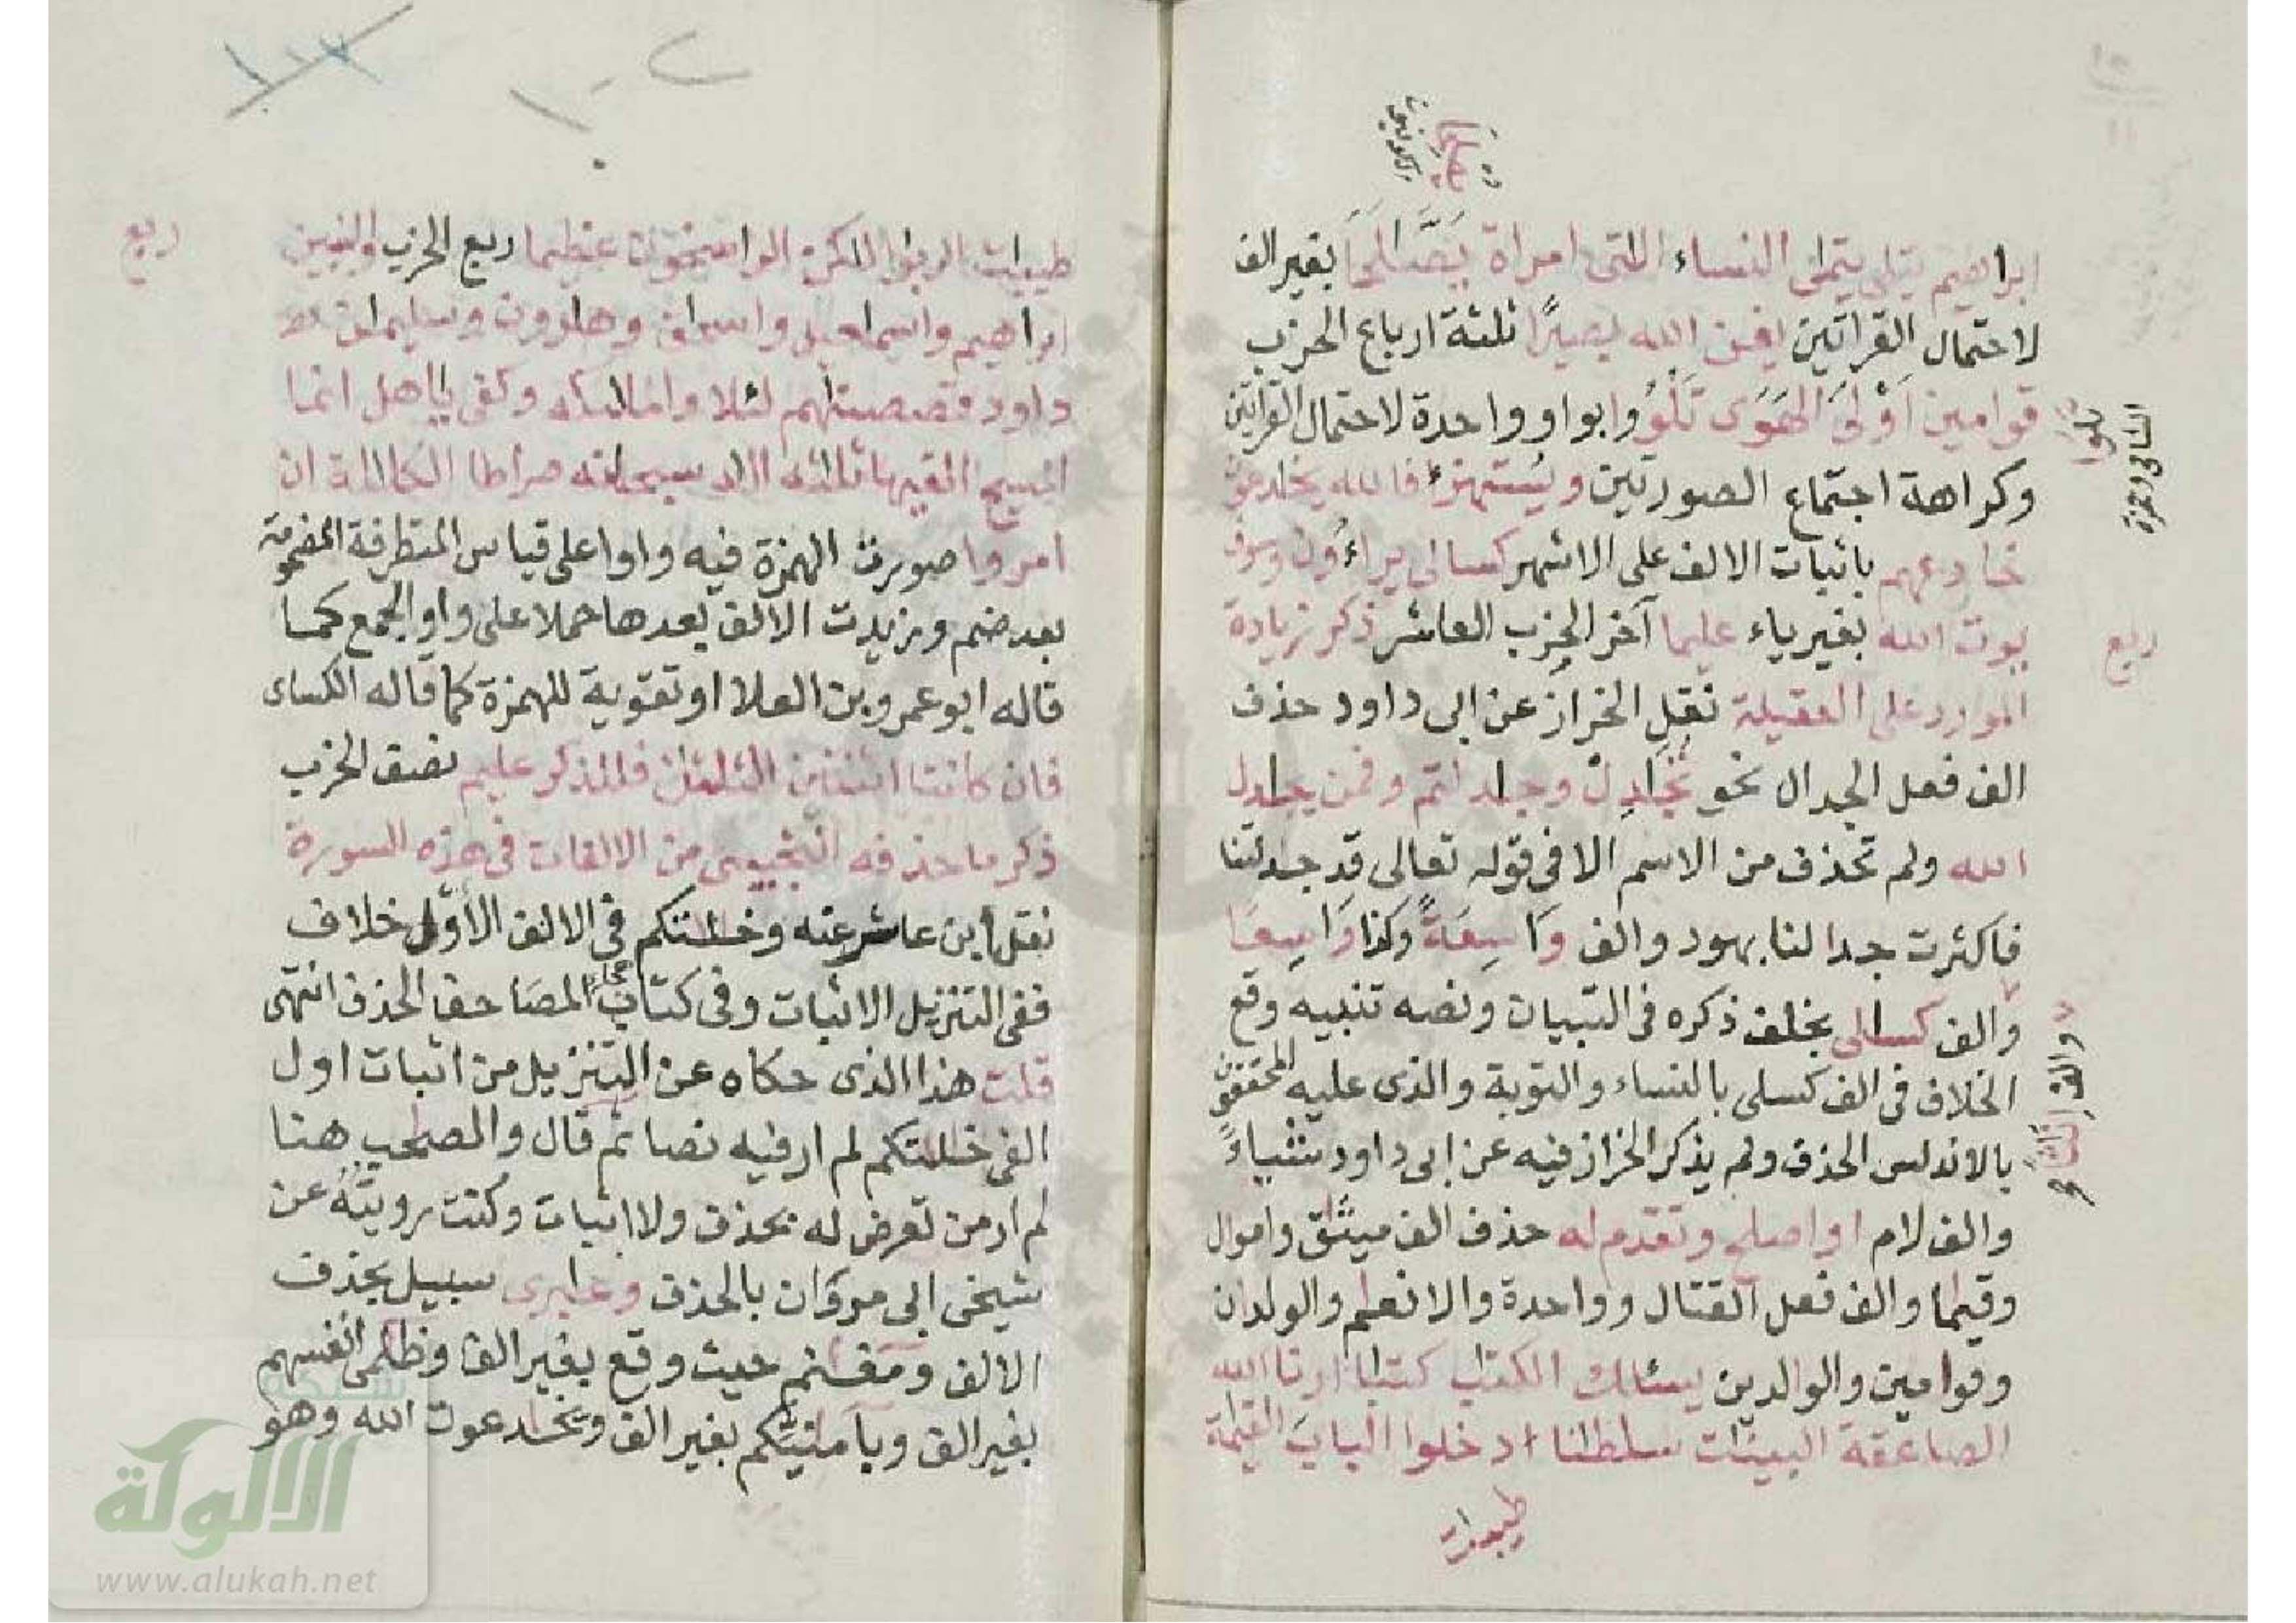 ابراهيم يتلى يتمى النساء التى امراة يَصَّالَحَا بغير الف
لاحتمال القراتين افمن الله بصيرًا ثلثة ارباع الحزب
قوامين اَوْلى الهَوَى تَلْوُوا بواو واحدة لاحتمال القراتين
وكراهة اجتماع الصورتين ويُستهزَأ فالله يخدعون
خادعهم باثبات الالف على الاشهر كسالى يراءُون وسوف
يوت الله بغير ياء عليما آخر الحزب العاشر ذكر زيادة
المورد على العقيلة نقل الخراز عن ابى داود حذف
الف فعل الجدال نحو تُجَادِلْ وجدلتم وفمن يجدل
الله ولم تحذف من الاسم الا فى قوله تعالى قد جدلتنا
فاكثرت جدالنا بهود والف وَاسِعَةً وكذا وَاسِعًا
والف كسالى بخلف ذكره فى التبيان ونصه تنبيه وقع
الخلاف فى الف كسلى بالنساء والتوبة والذى عليه المحققون
بالاندلس الحذف ولم يذكر الخراز فيه عن ابى داود شيئا
والف لام اواصلح وتقدم له حذف الف ميثاق واموال
وقيما والف فعل القتال وواحدة والانعام والولدان
وقوامين والوالدين يسئلك الكتب كتبا ارنا الله
الصاعقة البينات سلطنا ادخلوا الباب القيمة
طيبات
ربع
طيبات الربوا لكن الراسخون عظيما ربع الحزب والنبين
ابراهيم واسماعيل واسحاق وهارون وسليمان
داود قصصنهم لئلا والملئكه وكفى ياهل انما
المسيح القيها ثلثة اله سبحنه صراطا الكلالة ان
امروا صورت الهمزة فيه واوا على قياس المتطرفة المضمومة
بعد ضم وزيدت الالف بعدها حملا على واو الجمع كما
قاله ابو عمرو بن العلا او تقوية للهمزة كما قاله الكساى
فان كانتا اثنتين الثلثن فللذكر عليم نصف الحزب
ذكر ما حذفه التجيبى من الالفات فى هذه السورة
نقل ابن عاشر عنه وخلتكم فى الالف الأول خلاف
ففى التنزيل الاثبات وفى كتاب هجاء المصاحف الحذف انتهى
قلت هذا الذى حكاه عن التنزيل من اثبات اول
الفى خلتكم لم ار فيه نصا ثم قال والصحب هنا
لم ار من تعرض له بحذف ولا اثبات وكنت رويته عن
شيخى ابى مروان بالحذف وعابرى سبيل بحذف
الالف ومغنم حيث وقع بغير الف وظلمى أنفسهم
بغير الف وبأمنيكم بغير الف ويخدعون الله وهو
ربع
الألوكة
www.alukah.net